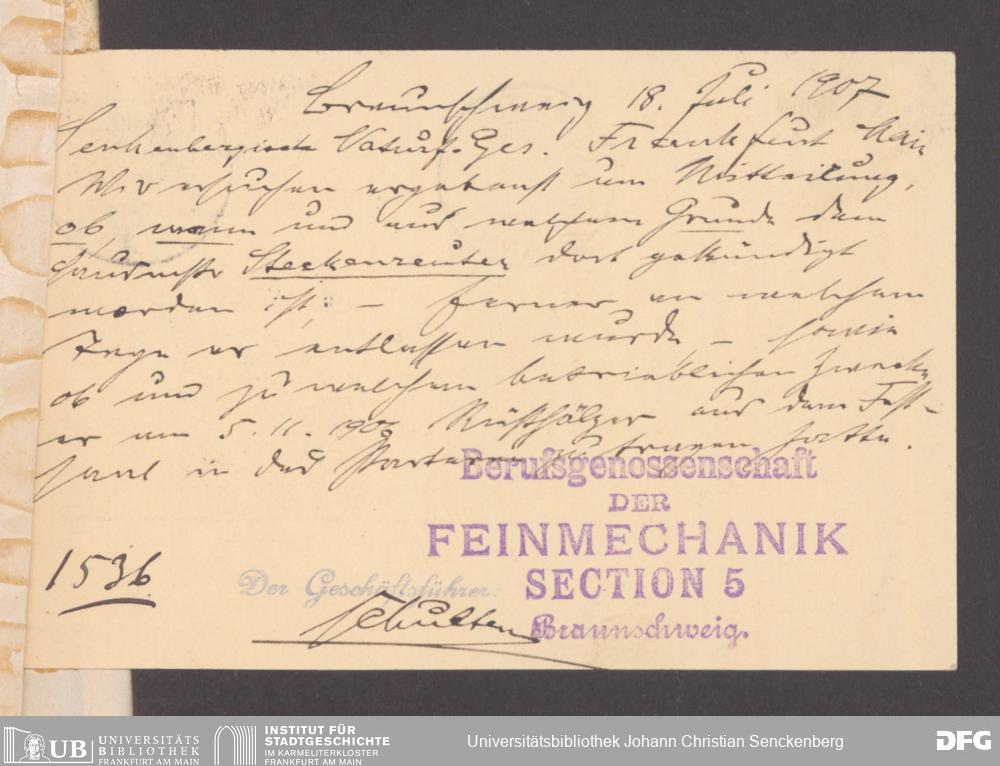 Braunschweig 18. Juli 1907
Senkenbergische Naturf. Ges. Frankfurt Main
Wir ersuchen ergebenst um Mitteilung,
ob, wann und aus welchem Grunde dem
Steckenreuter dort gekündigt
worden ist; – ferner an welchem
Tage er entlassen wurde – sowie
ob und zu welchem betrieblichen Zwecke
er am 5.11.1906 Rüsthölzer aus dem Fest-
saal in das Parterre zu tragen hatte.
Berufsgenossenschaft
DER
FEINMECHANIK
SECTION 5
Braunschweig.
1536
Der Geschäftsführer:
Schulten
UB UNIVERSITÄTS
BIBLIOTHEK
FRANKFURT AM MAIN
INSTITUT FÜR
STADTGESCHICHTE
IM KARMELITERKLOSTER
FRANKFURT AM MAIN
Universitätsbibliothek Johann Christian Senckenberg
DFG